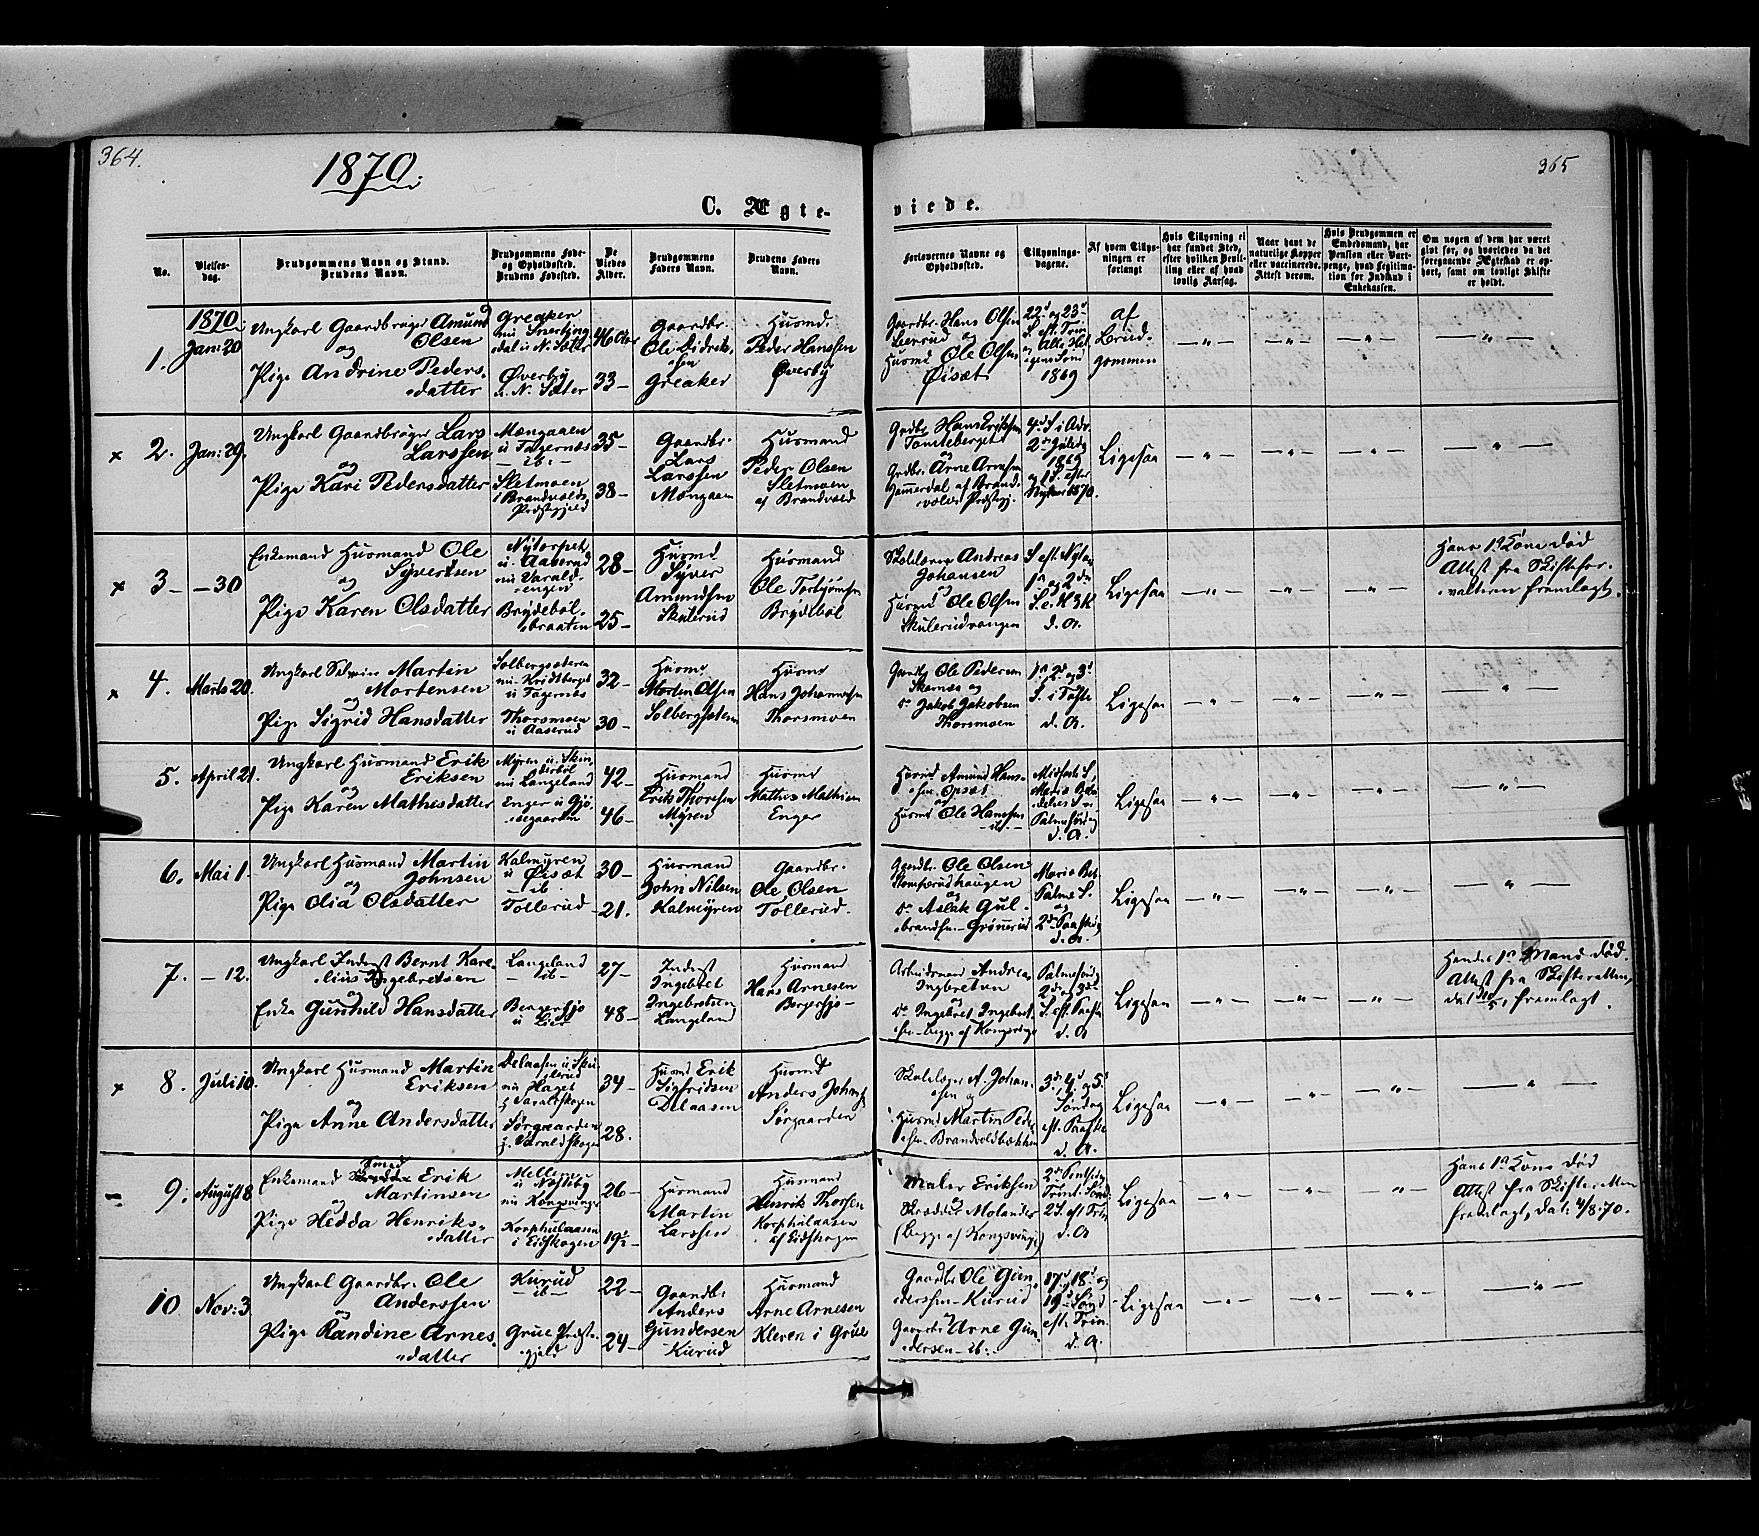 364.
1870.
365
C. Ægte-
viede.
No.
Vielses-
dag.
Brudgommens Navn og Stand.
Brudens Navn.
Brudgommens Føde-
og Opholdssted.
Brudens Fødested.
De
Viedes
Alder.
Brudgommens
Faders Navn.
Brudens Faders
Navn.
Forlovernes Navne og
Opholdssted.
Tillysnings-
dagene.
Af hvem Tillys-
ningen er
forlangt
Hvis Tillysning ei
har fundet Sted,
efter hvilken Bevil-
ling eller af hvad
lovlig Aarsag.
Naar havt de
naturlige Kopper
eller vaccinerede.
Attest derom.
Hvis Brudgommen er
Embedsmand, har
Pension eller Vart-
penge, hvad Legitima-
tion for Indskud i
Enkekassen.
Om nogen af dem har været
givt før, og hvorledes da det
foregaaende Ægteskab er op-
hørt, samt om lovligt Skifte
er holdt.
1.
1870.
Jan: 20
Ungkarl Gaardbruger Amund
Olsen
og
Pige Andrine Peders-
datter
Greaker
Øverby
u. N. Sæter
46 Aar
33-
Gaardbr.
Ole Didrik-
sen
Greaker
Husmd.
Peder Hanssen
Øverby
Gaardbr. Hans Olsen
og
Husmd Ole Olsen
Øisæt
22d og 23d
S. eft. Trin
og Alle Hel-
gens Sønd
1869
af
Brud-
gommen
x 2. Jan: 29.
Ungkarl Gaardbruger Lars
Larssen
og
Pige Kari Pedersdatter
Mængaaen
u Fagernæs
-ib.-
Sletmoen
i Brandvolds
Præstegjeld
35-
38-
Gaardbr.
Lars
Larssen
Mængaaen
Husmand
Peder Olsen
Sletmoen
af Brandvold
Tomteberget
og
Grdbr Arne Arnesen
af Brand-
volds Præstgj.
4d S. i Adv.
2den Juledg
1869
og S. efter
Nytaar 1870.
Ligesaa
x 3 - - 30
Enkemand Husmand Ole
Syvertsen
og
Pige Karen Olsdatter
Nytorpet
u. Aaserud
nu Varald-
Brydebøl-
braaten
28-
25-
Husmd
Syver
Amundsen
Skulerud
Husmand
Ole Torbjørnsen
Brydebøl
Skolelærer Andreas
Johansen
og
Husmd Ole Olsen
Skulerudvangen
S. eft. Nytaar
1n og 2den
S. e. H 3 K
d. A.
Ligesaa
Hans 1e Kone død
Attest fra Skiftefor-
valteren fremlagt.
x 4. Marts 20.
Ungkarl Martin
Mortensen
og
Pige Sigrid Hansdatter
Solbergsæteren
u Fagernæs
Thorsmoen
u Aaserud
32-
30-
Husmd
Morten Olsen
Solbergsæteren
Husmd
Hans Johannesen
Thorsmoen
Ole Pedersen
og
Do Jakob Jakobsen
Thorsmoen
1n 2d og 3d
S. i Faste
d. A.
Ligesaa
5. April 21.
Ungkarl Husmand Erik
Eriksen
og
Pige Karen Mathisdatter
Myren u. Skin-
derbøl
nu Langeland
Enger u Gjø-
segaarden
42-
46-
Husmand
Erik Thoresen
Myren
Husmd
Mathis Mathisen
Enger
Husmd Amund Han-
sen Opsæt
og
Husmd Ole Hanssen
-ib-
Midfaste S.
Maria Be-
budelses S. og
Palmesøndag
d. A.
Ligesaa
6. Mai 1.
Ungkarl Husmand Martin
Johnsen
og
Pige Olia Olsdatter
Kalmyren
u Øisæt
-ib.-
Tollerud
30-
21.
Husmand
John Nilsen
Kalmyren
Gaardbr.
Ole Olsen
Tollerud.
Gaardbr. Ole Olsen
og
Do Aslak Gul-
brandsen - Grønnerud
Maria Beb.
Palme S.
og
2den Paaskdg
d. A.
Ligesaa
7. - 12.
Ungkarl Inderst Bernt Kare-
lius Ingebretsen
og
Enke Gunhild Hansdatter
Langeland
-ib-
Bergersjø
u Lier
27-
48-
Inderst
Ingebret
Ingebretsen
Langeland
Husmand
Hans Arnesen
Bergersjø-
Arbeidsmand Andreas
Ingbretsen
og
Do Ingebret Ingebret-
sen - begge af Kongsvinger
Palmesøndag
2den og 3die
S. eft. Paaske
d. A
Ligesaa
Hendes 1e Mand død.
Attest fra Skifteretten,
fremlagt.
x 8. Juli 10.
Ungkarl Husmand Martin
Eriksen
og
Pige Anne Andersdatter
Delaasen u. Sku-
lerud
nu Haget
p. Varaldskogen
Sørgaarden
p. Varaldskogen
34-
28.
Husmd Erik
Sigfridsen
Delaasen
Husmd
Anders Johans.
Sørgaarden
Skolelærer A. Johan-
sen og
Husmd Martin Peder-
sen - Brandvoldbakken
3die, 4d og 5d
Søndag
eft. Paaske
d. A.
Ligesaa
- 9. August 8
Enkemand Smed Erik
Martinsen
og
Pige Hedda Henriks-
datter
nu Kongsvinger
Korphulaasen
i Eidskogen
26-
19½-
Husmand
Martin
Larssen
Husmand
Henrik Thorsen
Korphulaasen
af Eidskogen
Maler Eriksen
og
Skrædder Molander
(begge af Kongsvinger)
2den Pintsdag
Trinit. Sønd
2d S. eft. Trin
d. A
Ligesaa
Hans 1e Kone død
Attest fra Skifteretten
fremlagt, dat. 4/8.70.
10 Nov: 3
Ungkarl Gaardbr. Ole
Anderssen
og
Pige Randine Arnes-
datter
Kurud
-ib-
Grue Præste-
gjeld
22-
24-
Gaardbr.
Anders
Gundersen
Kurud
Husmand
Arne Arnesen
Kleven i Grue
Gaardbr Ole Gun-
derssen - Kurud
og
Gaardbr Arne Gun-
dersen - ib.-
17d, 18d og
19d Sønd
eft. Trin
d. A.
Ligesaa